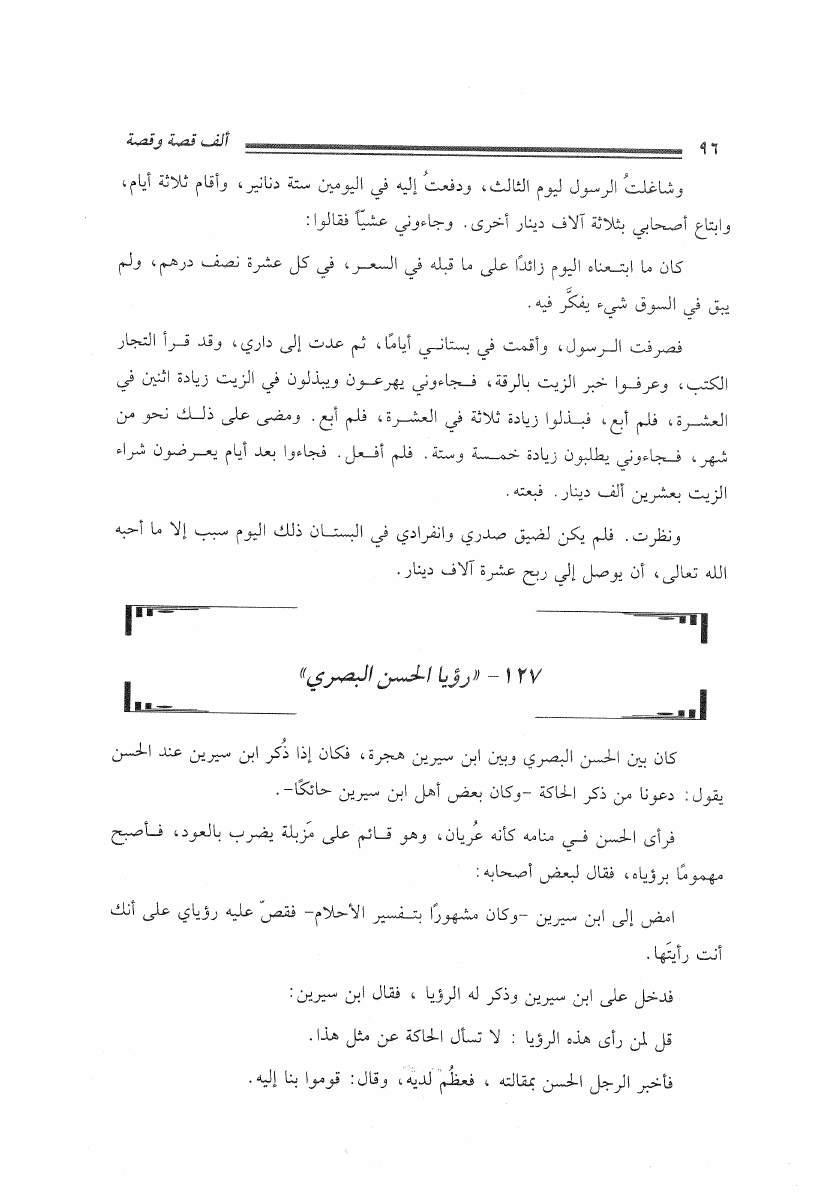 ٩٦ ألف قصة وقصة
وشاغلتُ الرسول ليوم الثالث، ودفعتُ إليه في اليومين ستة دنانير، وأقام ثلاثة أيام،
وابتاع أصحابي بثلاثة آلاف دينار أخرى. وجاءوني عشيّاً فقالوا:
كان ما ابتعناه اليوم زائدًا على ما قبله في السعر، في كل عشرة نصف درهم، ولم
يبق في السوق شيء يفكَّر فيه.
فصرفت الرسول، وأقمت في بستاني أيامًا، ثم عدت إلى داري، وقد قرأ التجار
الكتب، وعرفوا خبر الزيت بالرقة، فجاءوني يهرعون ويبذلون في الزيت زيادة اثنين في
العشرة، فلم أبع، فبذلوا زيادة ثلاثة في العشرة، فلم أبع. ومضى على ذلك نحو من
شهر، فجاءوني يطلبون زيادة خمسة وستة. فلم أفعل. فجاءوا بعد أيام يعرضون شراء
الزيت بعشرين ألف دينار. فبعته.
ونظرت. فلم يكن لضيق صدري وانفرادي في البستان ذلك اليوم سبب إلا ما أحبه
الله تعالى، أن يوصل إلي ربح عشرة آلاف دينار.
١٢٧ - «رؤيا الحسن البصري»
كان بين الحسن البصري وبين ابن سيرين هجرة، فكان إذا ذُكر ابن سيرين عند الحسن
يقول: دعونا من ذكر الحاكة -وكان بعض أهل ابن سيرين حائكًا-.
فرأى الحسن في منامه كأنه عُريان، وهو قائم على مَزبلة يضرب بالعود، فأصبح
مهمومًا برؤياه، فقال لبعض أصحابه:
امض إلى ابن سيرين -وكان مشهورًا بتفسير الأحلام- فقصّ عليه رؤياي على أنك
أنت رأيتَها.
فدخل على ابن سيرين وذكر له الرؤيا ، فقال ابن سيرين:
قل لمن رأى هذه الرؤيا : لا تسأل الحاكة عن مثل هذا.
فأخبر الرجل الحسن بمقالته ، فعظُم لديه، وقال: قوموا بنا إليه.